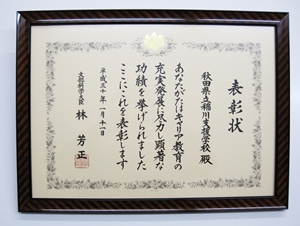 表彰状
秋田県立稲川支援学校 殿
あなたがたはキャリア教育の
充実発展に尽力し顕著な
功績を挙げられました
ここにこれを表彰します
平成三十年一月十一日
文部科学大臣 林 芳正